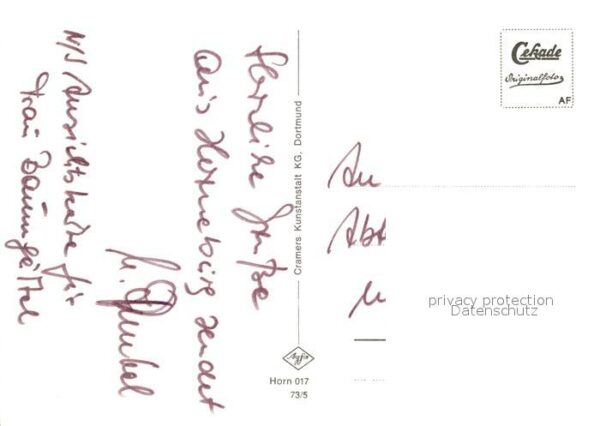 Herzliche Grüße
aus Horneburg sendet
N/S Ansichtskarte für
Frau Baumgärtel
Cramers Kunstanstalt KG, Dortmund
Agfa
Horn 017
73/5
Cekade
Originalfoto
AF
An
Abt
privacy protection
Datenschutz